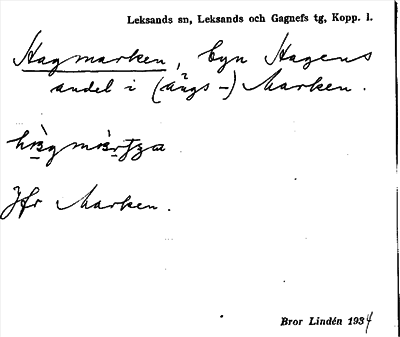 Leksands sn, Leksands och Gagnefs tg, Kopp. l.
Hagmarken, byn Hagens
andel i (ängs-) Marken.
Jfr Marken.
Bror Lindén 1934